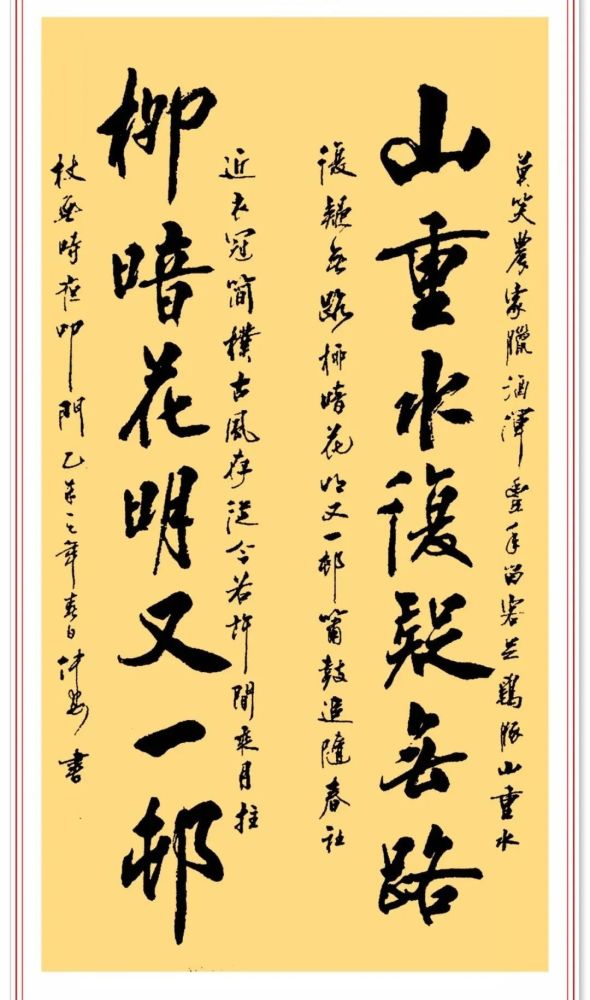 莫笑農家臘酒渾豐年留客足鷄豚山重水
山重水復疑無路
復疑無路柳暗花明又一邨簫鼓追隨春社
近衣冠簡樸古風存從今若許間乘月拄
柳暗花明又一邨
杖無時夜叩門乙未之年春日書